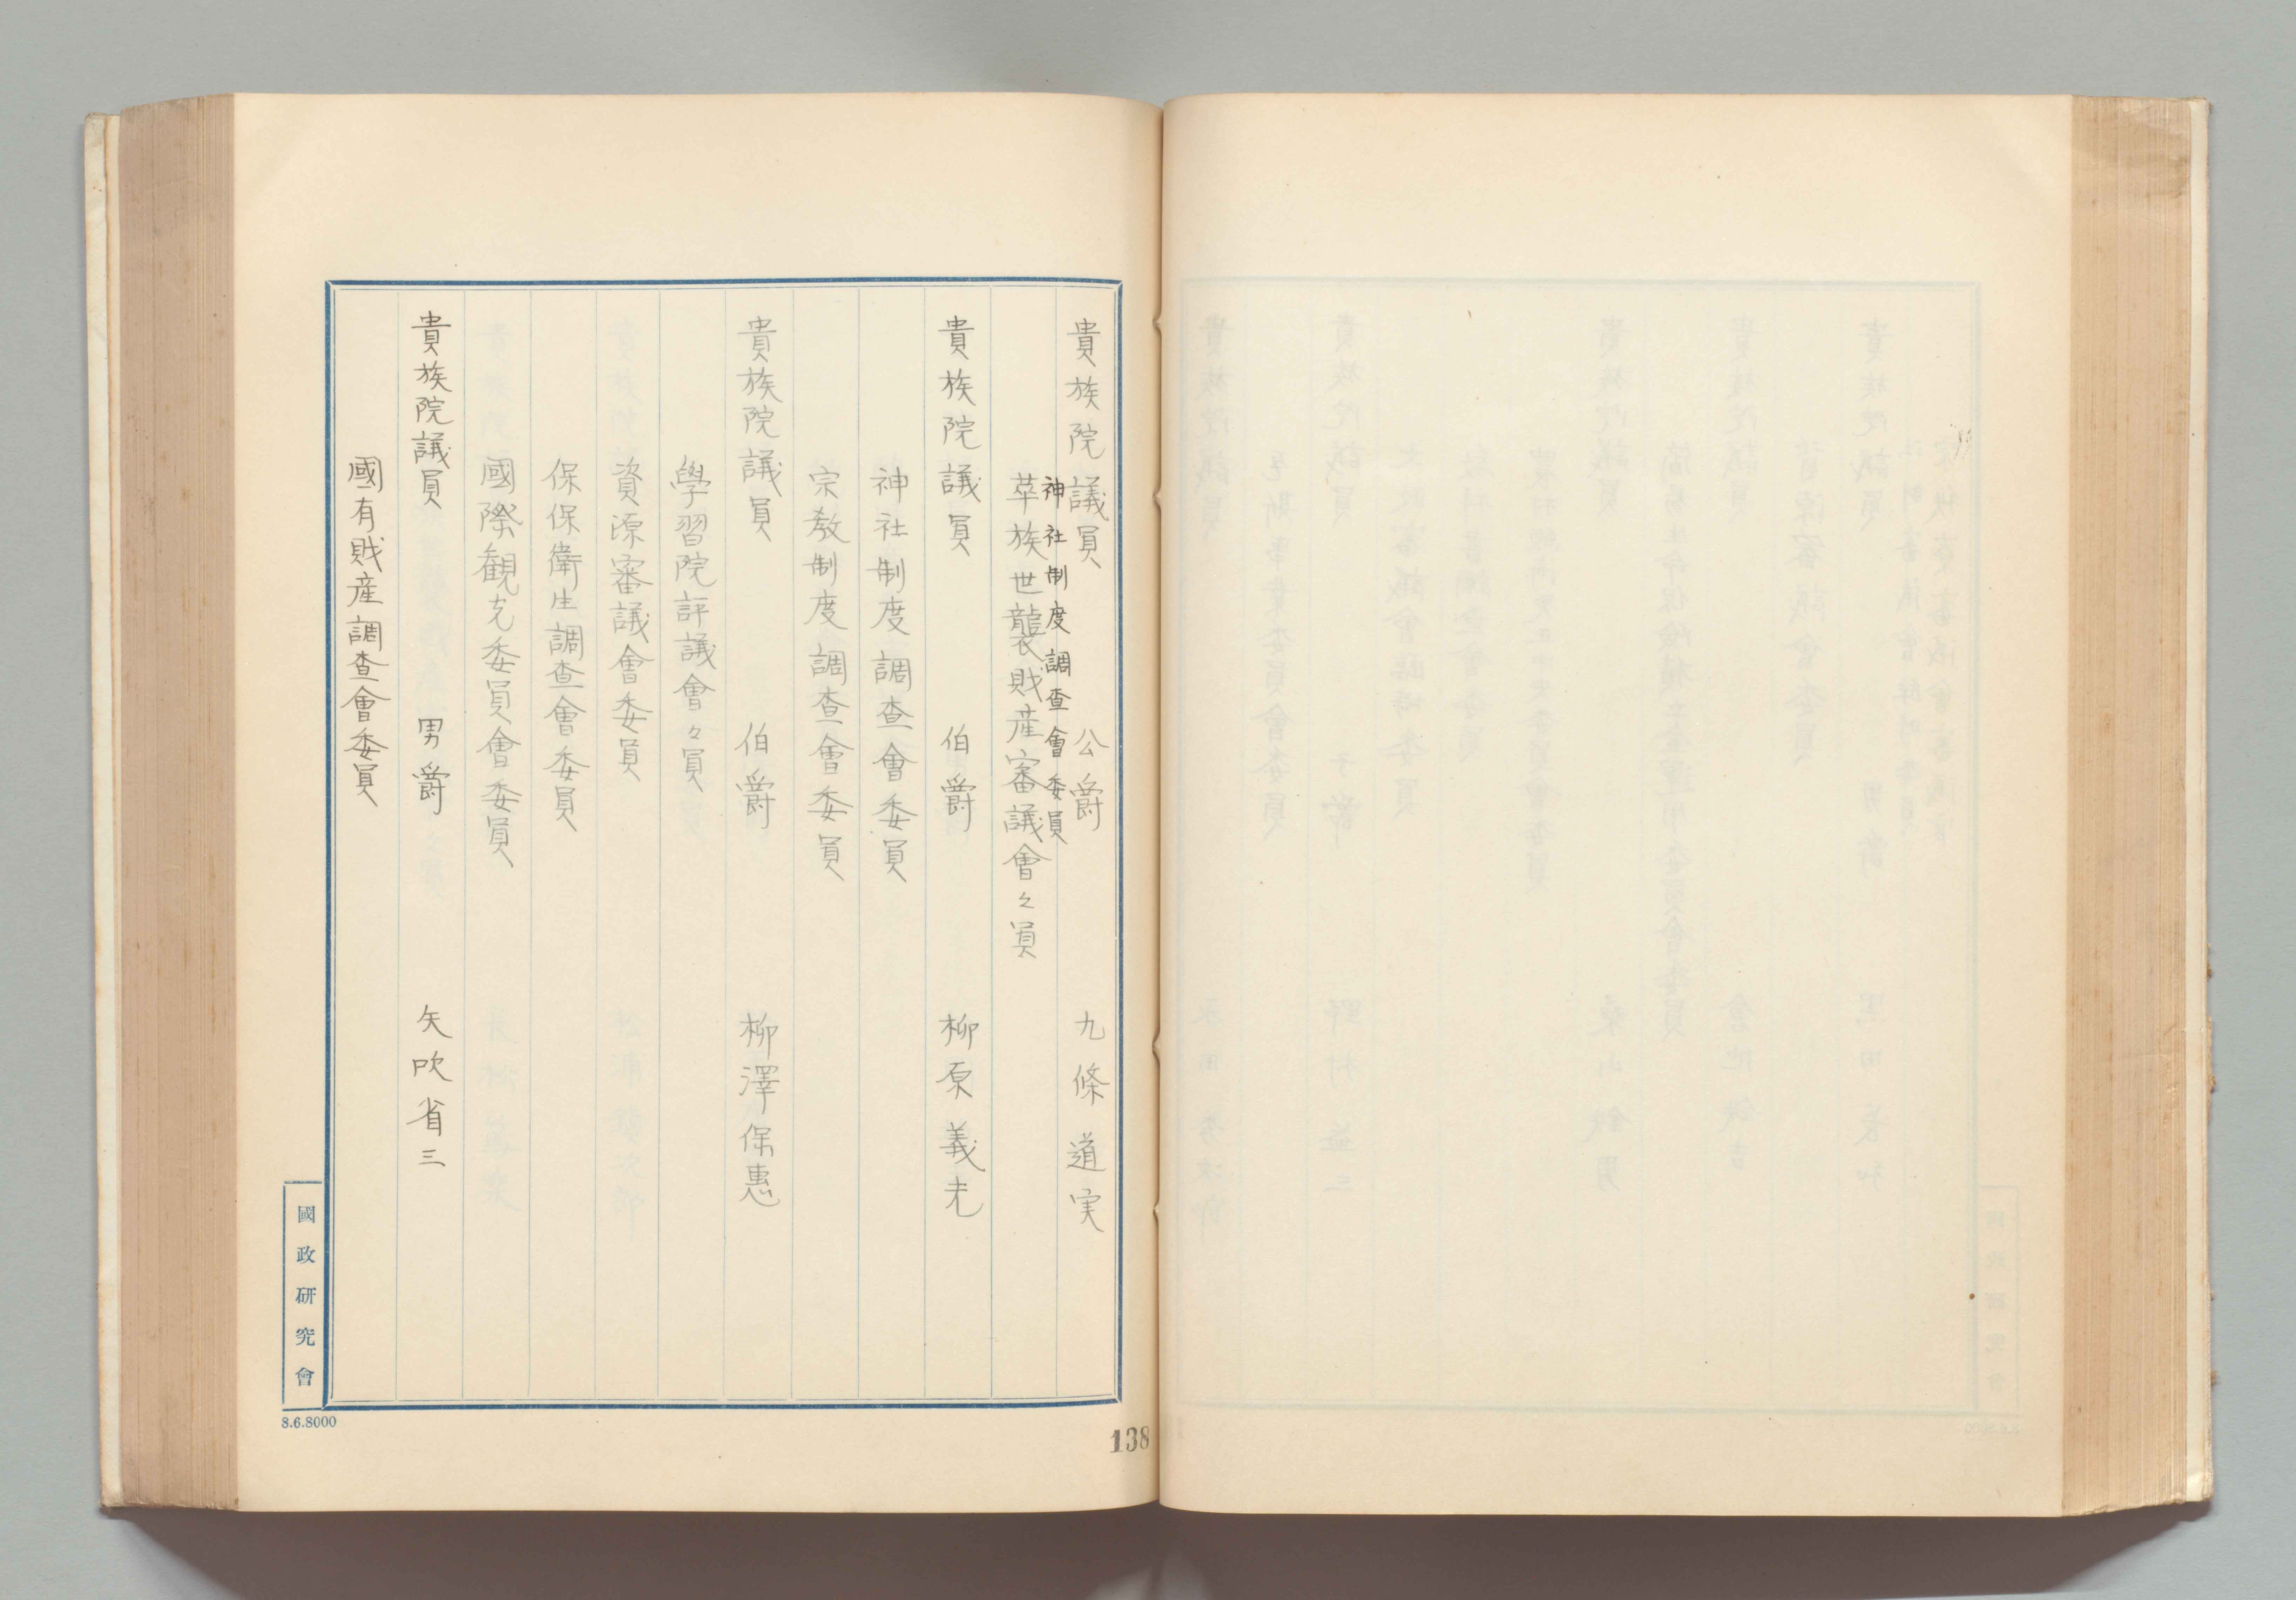 貴族院議員　公爵　九條道実
神社制度調査會委員
華族世襲財産審議會々員
貴族院議員　伯爵　柳原義光
神社制度調査會委員
宗教制度調査會委員
貴族院議員　伯爵　柳澤保惠
學習院評議會々員
資源審議會委員
保保衛生調査會委員
國際観光委員會委員
貴族院議員　男爵　矢吹省三
國有財産調査會委員
國政研究會
8.6.8000
138